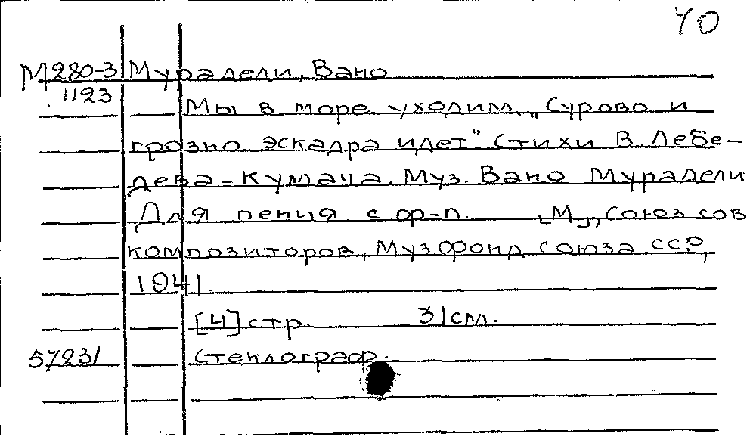 70
М280-3 Мурадели, Вано
1123
Мы в море уходим. „Сурово и
грозно эскадра идет" Стихи В. Лебе-
дева-Кумача. Муз. Вано Мурадели
Для пения с ф-п. [М.], Союз сов
композиторов, Музфонд Союза ССР,
1941.
[4] стр. 31 см.
57231 Стеклограф.